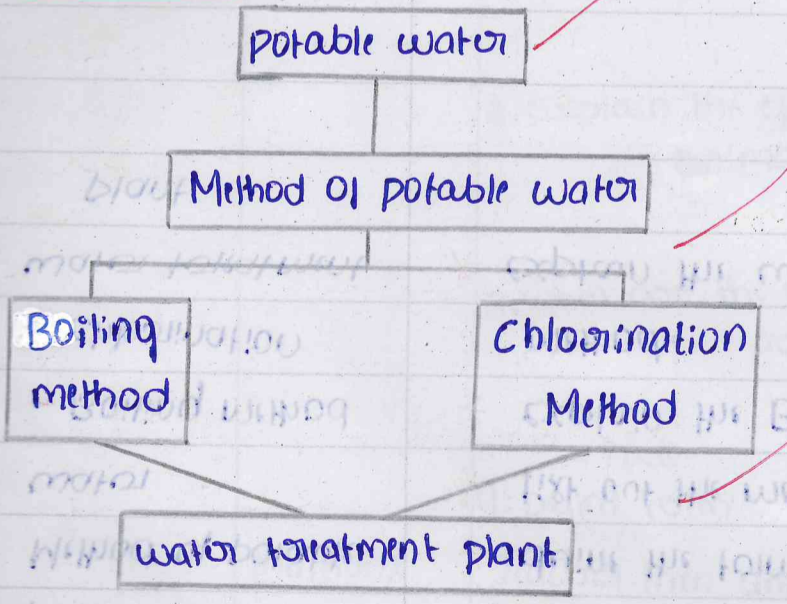 potable water
Method of potable water
Boiling
method
Chlorination
Method
water treatment plant